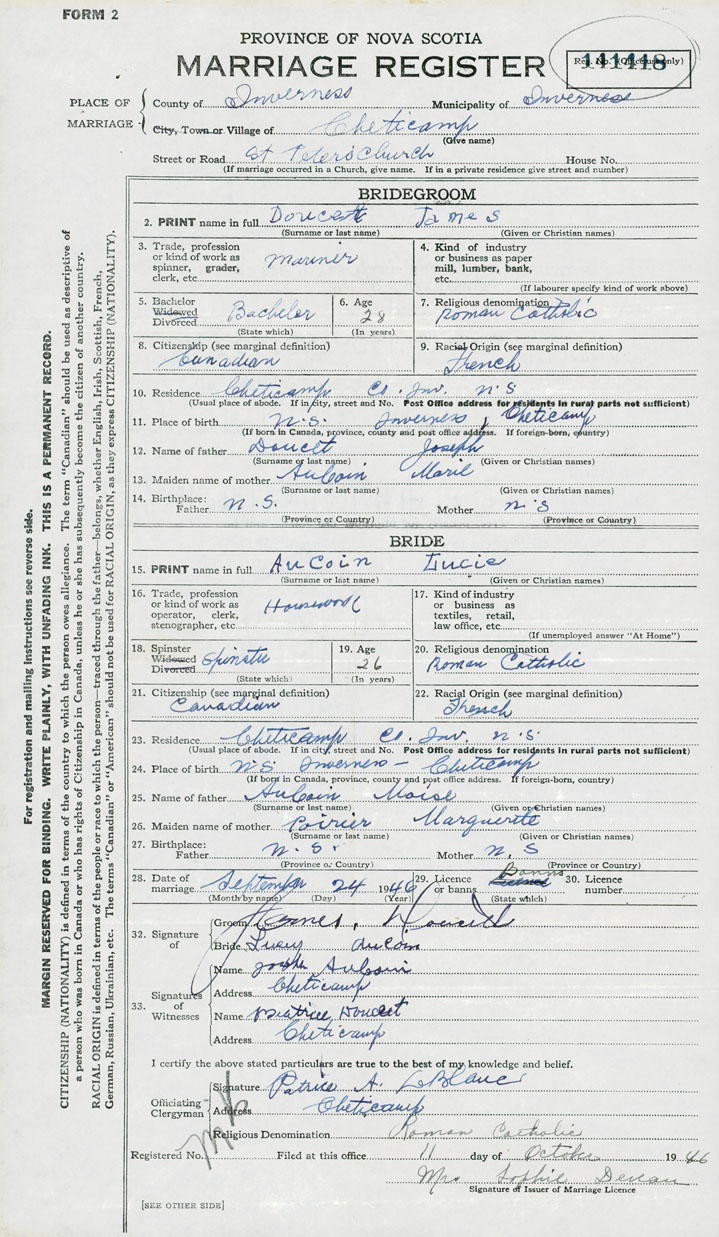 FORM 2
PROVINCE OF NOVA SCOTIA
MARRIAGE REGISTER
Reg. No. (Office use only)
141418
PLACE OF MARRIAGE
County of Inverness Municipality of Inverness
City, Town or Village of Cheticamp
(Give name)
Street or Road St Peters Church House No.
(If marriage occurred in a Church, give name. If in a private residence give street and number)
BRIDEGROOM
2. PRINT name in full Doucett James
(Surname or last name) (Given or Christian names)
3. Trade, profession or kind of work as spinner, grader, clerk, etc. Mariner
4. Kind of industry or business as paper mill, lumber, bank, etc.
(If labourer specify kind of work above)
5. Bachelor Widowed Divorced Bachelor
(State which)
6. Age 28
(In years)
7. Religious denomination
Roman Catholic
8. Citizenship (see marginal definition)
Canadian
9. Racial Origin (see marginal definition)
French
10. Residence Cheticamp Co. Inv. N S
(Usual place of abode. If in city, street and No. Post Office address for residents in rural parts not sufficient)
11. Place of birth N.S. Inverness, Cheticamp
(If born in Canada, province, county and post office address. If foreign-born, country)
12. Name of father Doucet Joseph
(Surname or last name) (Given or Christian names)
13. Maiden name of mother AuCoin Marie
(Surname or last name) (Given or Christian names)
14. Birthplace: Father N.S. Mother N.S
(Province or Country) (Province or Country)
BRIDE
15. PRINT name in full AuCoin Lucie
(Surname or last name) (Given or Christian names)
16. Trade, profession or kind of work as operator, clerk, stenographer, etc. Housework
17. Kind of industry or business as textiles, retail, law office, etc.
(If unemployed answer "At Home")
18. Spinster Widowed Divorced Spinster
(State which)
19. Age 26
(In years)
20. Religious denomination
Roman Catholic
21. Citizenship (see marginal definition)
Canadian
22. Racial Origin (see marginal definition)
French
23. Residence Cheticamp Co. Inv. N.S.
(Usual place of abode. If in city, street and No. Post Office address for residents in rural parts not sufficient)
24. Place of birth N.S. Inverness - Cheticamp
(If born in Canada, province, county and post office address. If foreign-born, country)
25. Name of father AuCoin Moise
(Surname or last name) (Given or Christian names)
26. Maiden name of mother Poirier Marguerite
(Surname or last name) (Given or Christian names)
27. Birthplace: Father N.S. Mother N.S
(Province or Country) (Province or Country)
28. Date of marriage September 24 1946
(Month by name) (Day) (Year)
29. Licence or banns Banns
(State which)
30. Licence number
32. Signature of
Groom James Doucett
Bride Lucy AuCoin
33. Signatures of Witnesses
Name Joseph AuCoin
Address Cheticamp
Name Beatrice Doucet
Address Cheticamp
I certify the above stated particulars are true to the best of my knowledge and belief.
Officiating Clergyman
Signature Patrice A. LeBlanc
Address Cheticamp
Religious Denomination Roman Catholic
Registered No. Filed at this office 11 day of October 1946
Mrs Sophie
Signature of Issuer of Marriage Licence
[SEE OTHER SIDE]
For registration and mailing instructions see reverse side.
MARGIN RESERVED FOR BINDING. WRITE PLAINLY, WITH UNFADING INK. THIS IS A PERMANENT RECORD.
CITIZENSHIP (NATIONALITY) is defined in terms of the country to which the person owes allegiance. The term "Canadian" should be used as descriptive of
a person who was born in Canada or who has rights of Citizenship in Canada, unless he or she has subsequently become the citizen of another country.
RACIAL ORIGIN is defined in terms of the people or race to which the person—traced through the father—belongs, whether English, Irish, Scottish, French,
German, Russian, Ukrainian, etc. The terms "Canadian" or "American" should not be used for RACIAL ORIGIN, as they express CITIZENSHIP (NATIONALITY).